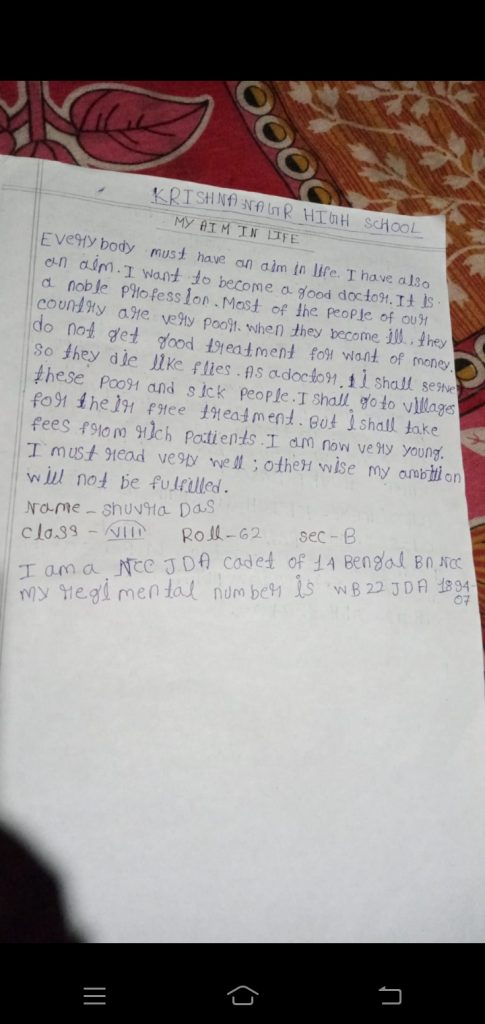 KRISHNANAGR HIGH SCHOOL
MY AIM IN LIFE
Everybody must have an aim in life. I have also
an aim. I want to become a good doctor. It is
a noble profession. Most of the people of our
country are very poor. when they become ill, they
do not get good treatment for want of money.
So they die like flies. As a doctor, I shall serve
these poor and sick people. I shall go to villages
for their free treatment. But I shall take
fees from rich patients. I am now very young.
I must read very well; other wise my ambition
will not be fulfilled.
Name - Shuvra Das
Class - VIII Roll-62 sec-B
I am a NCC JDA cadet of 14 Bengal Bn, NCC
My regimental number is WB22 JDA 1894-
07